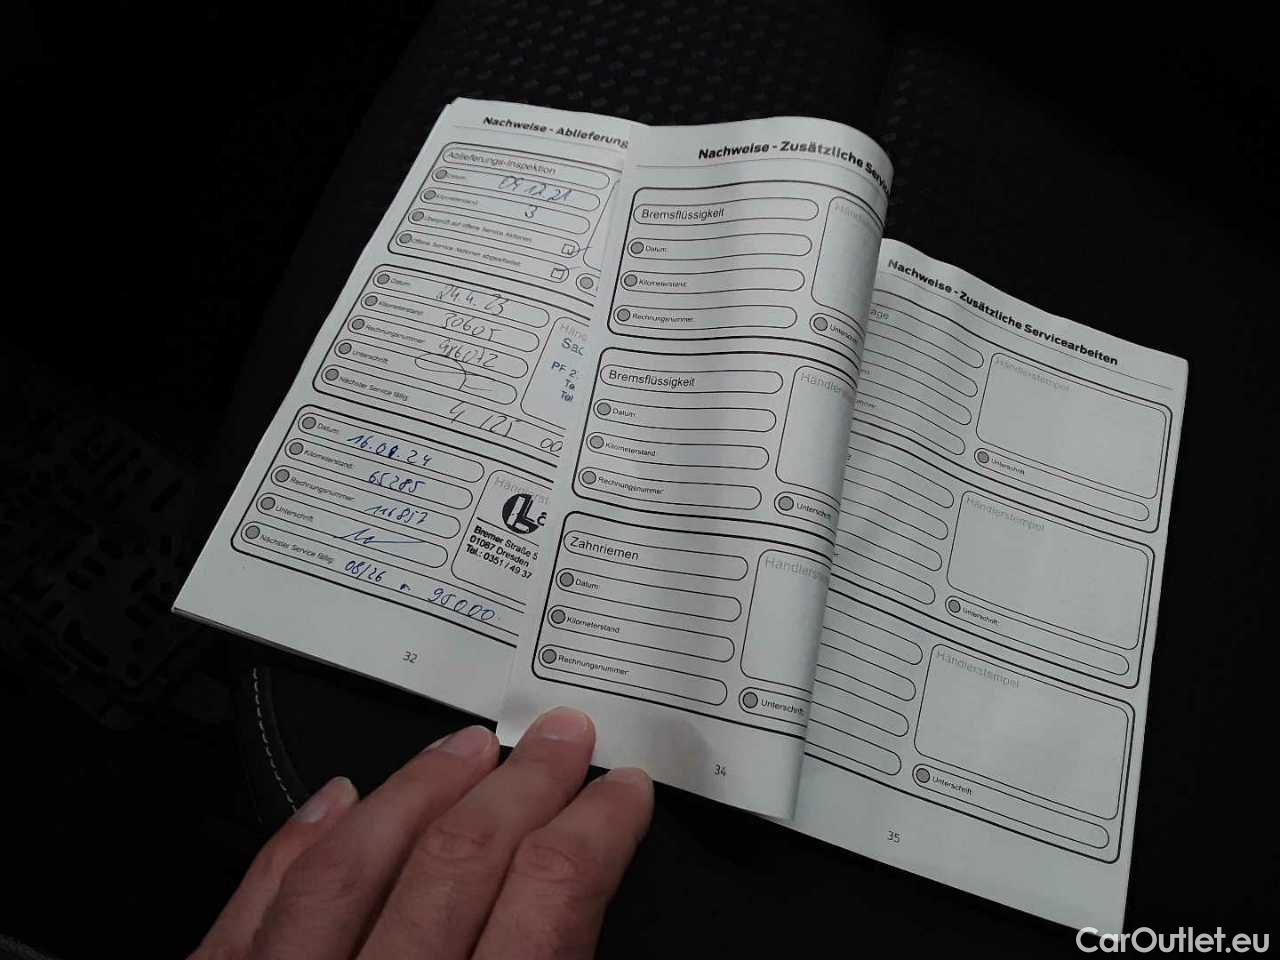 Nachweise - Ablieferung
Ablieferungs-Inspektion
Datum: 09.12.21
Kilometerstand: 3
Überprüft auf offene Service Aktionen:
Offene Service Aktionen abgearbeitet:
Datum: 24.4.23
Kilometerstand: 30605
Rechnungsnummer:
Unterschrift:
Nächster Service fällig:
PF 2
Tel
Datum: 16.08.24
Kilometerstand: 65285
Rechnungsnummer: 116857
Unterschrift:
Nächster Service fällig: 08/26 95000
Bremer Straße 5
01067 Dresden
Tel.: 0351 / 49 37
32
Nachweise - Zusätzliche
Bremsflüssigkeit
Datum:
Kilometerstand:
Rechnungsnummer:
Unterschrift:
Bremsflüssigkeit
Datum:
Kilometerstand:
Rechnungsnummer:
Händlerstempel
Unterschrift:
Zahnriemen
Datum:
Kilometerstand:
Rechnungsnummer:
Unterschrift:
34
Nachweise - Zusätzliche Servicearbeiten
Händlerstempel
Unterschrift:
Händlerstempel
Unterschrift:
Händlerstempel
Unterschrift:
35
CarOutlet.eu